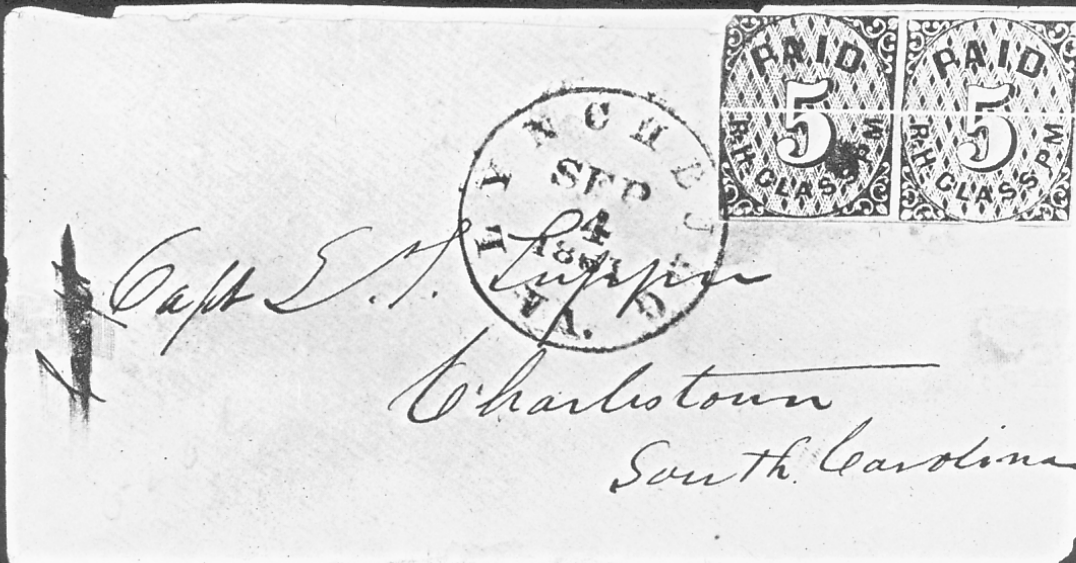 PAID
5
R.H. GLASS P.M
PAID
5
R.H. GLASS P.M
LYNCHBURG
SEP
4
VA.
Capt
Charlestown
South Carolina